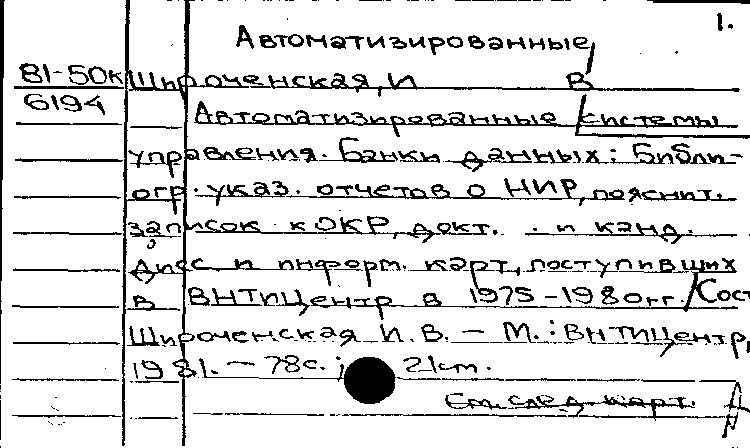 1.
Автоматизированные
81-50к Широченская, И В
6194 Автоматизированные системы
управления. Банки данных: Библи-
огр. указ. отчетов о НИР, пояснит.
записок к ОКР, докт. . и канд.
дисс. и информ. карт, поступивших
в ВНТИЦентр в 1975-1980гг. / Сост
Широченская И. В. - М. : ВНТИЦентр,
1981. - 78с. ; 21см.
См. след. карт.